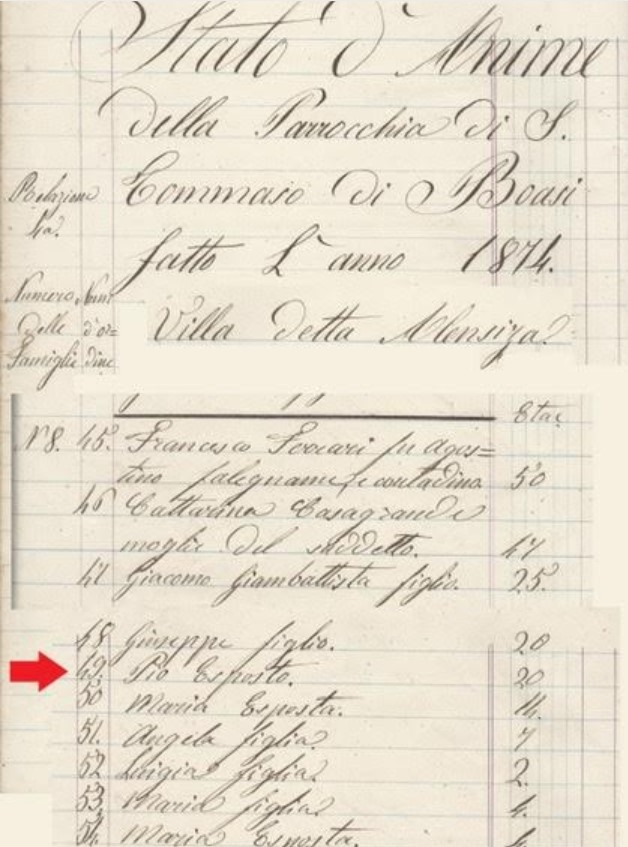 Stato d'Anime
della Parrocchia di S.
Tommaso di Boasi
fatto L'anno 1874.
Relazione
4a.
Numero Num
delle d'or=
Famiglie dine
Villa detta
Età
N 8. 45. Francesco Ferrari fu Agos=
tino falegname, e contadino 50
46 Cattarina Casagrande
moglie del suddetto. 47
47 Giacomo Giambattista figlio. 25.
48 Giuseppe figlio. 20
49. Pio Esposto. 20
50 Maria Esposta. 14.
51. Angela figlia. 7
52 Luigia figlia. 2.
53. Maria figlia. 4.
54. Maria Esposta. 4